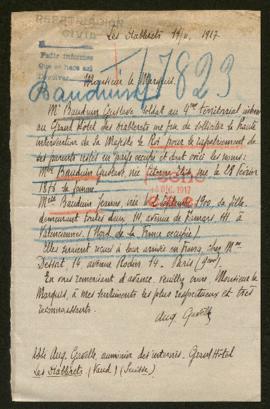 Les Diablerets 19/11. 1917.
REPATRIACION
CIVIL
Pedir informes
Que se hace así
17823
Monsieur le Marquis.
Bauduin
Mr Bauduin Gustave soldat au 4me territorial interné
au Grand Hôtel des Diablerets me fait solliciter la haute
intervention de Sa Majesté le Roi pour le rapatriement de
ses parents restés en pays occupé et dont voici les noms:
Mme Bauduin Gustave née le 28 février
1876 sa femme.
Melle Bauduin Jeanne, née 1900, sa fille.
demeurant toutes deux 111, avenue de 111 à
Valenciennes. (Nord de la France occupée)
DIC. 1917
Elles seraient reçues à leur arrivée en France, chez Mme
Dessat 14 avenue Rodin 14. Paris
En vous remerciant d'avance, veuillez croire Monsieur le
Marquis, à mes sentiments les plus respectueux et très
reconnaissants.
Aug.
Abbé Aug. aumônier des internés. Grand Hôtel
Les Diablerets (Vaud) (Suisse)